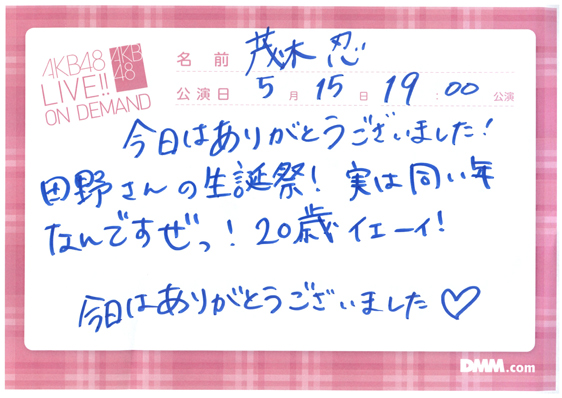 AKB48
LIVE!!
ON DEMAND
AKB
48
名前 茂木 忍
公演日 5月 15日 19:00 公演
今日はありがとうございました!
田野さんの生誕祭! 実は同い年
なんですぜっ! 20歳 イエーイ!
今日はありがとうございました♡
DMM.com